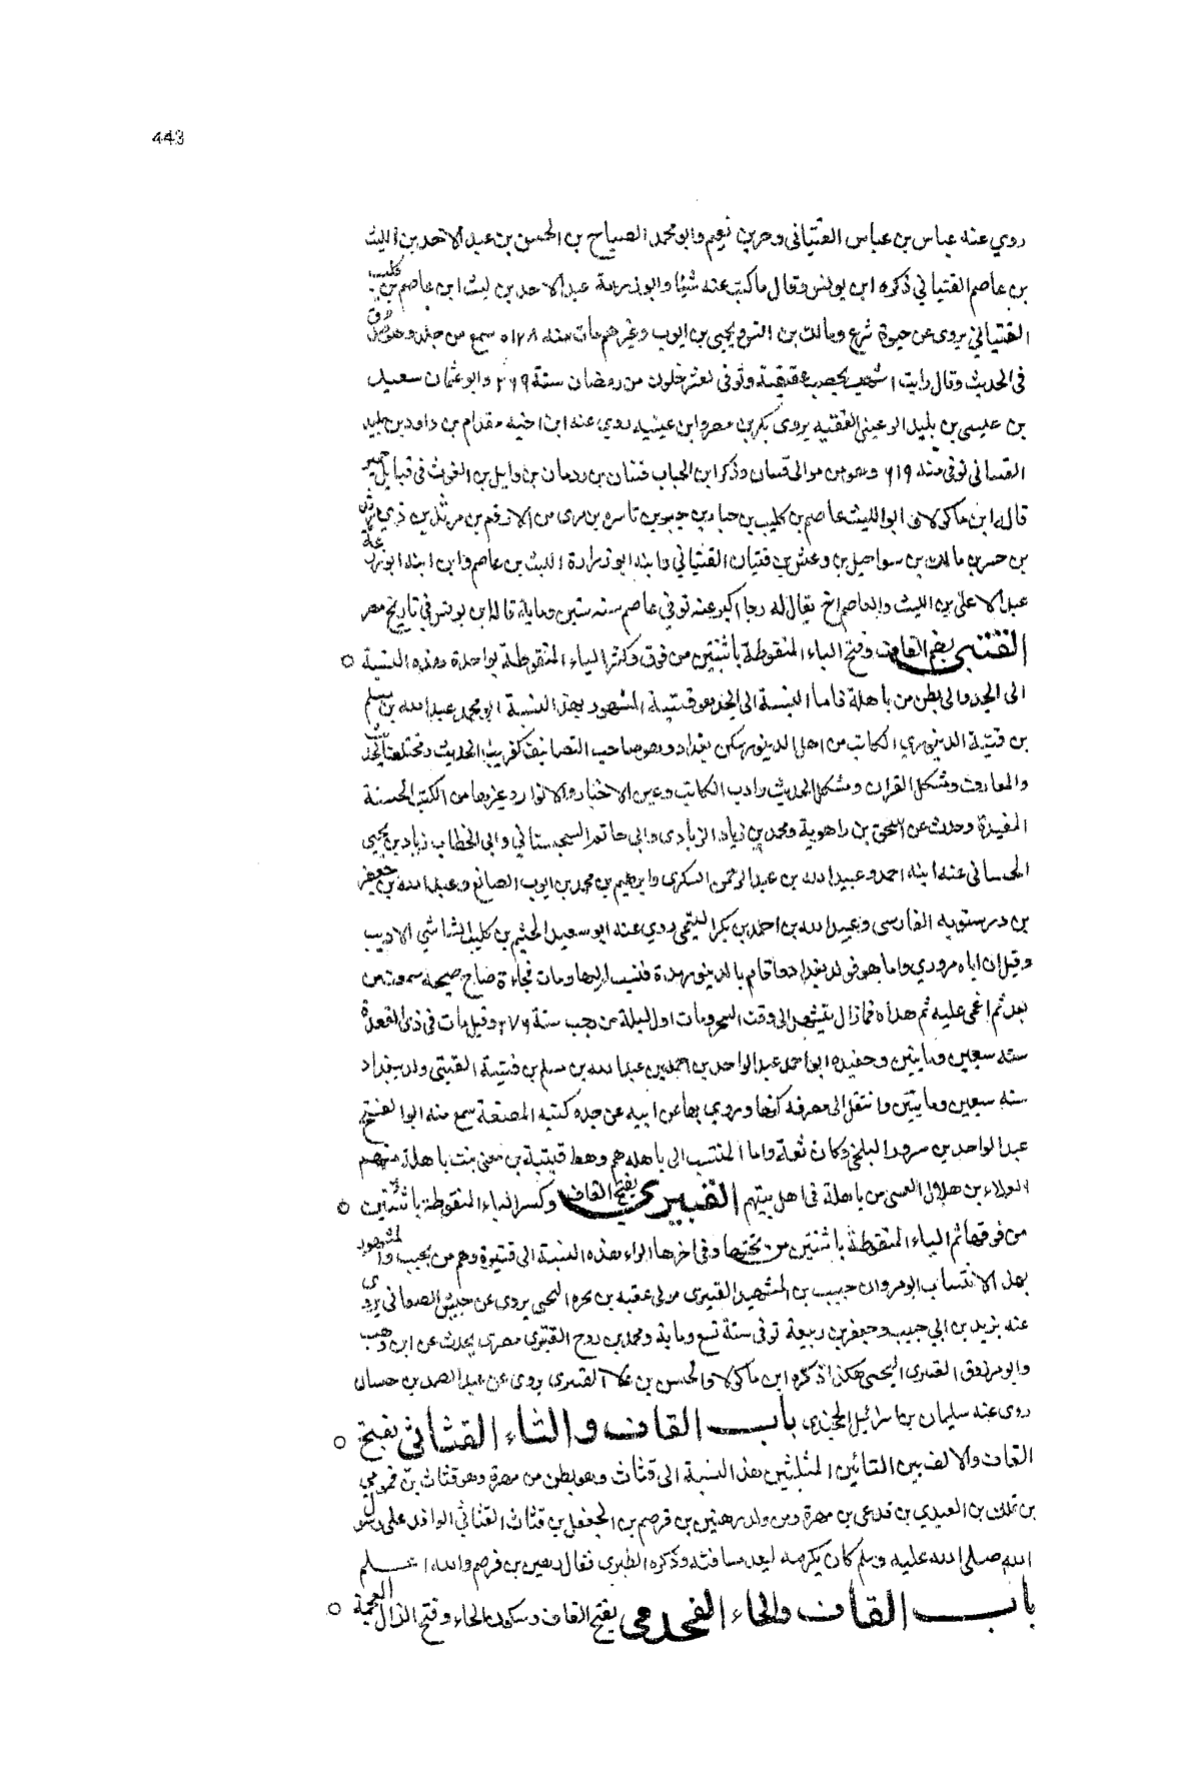 443
روي عنه عباس بن عباس القتباني وحرب نعيم وابو محمد الصباح بن الحسن بن عبد الاحد بن الليث
بن عاصم القتباني ذكره ابن يونس وقال ما كتب عنه شيئا وابو زرعة عبد الاحد بن ليث ابن عاصم بن كليب
القتباني يروى عن حيوة شرع ومالك بن يحيى بن ايوب وغيرهم مات سنه سمع من جده وهو صدوق
في الحديث وقال رايت اشهب يخضب عنفقته وتوفى لعشر خلون من رمضان سنة ٢٦٩ وابو عثمان سعيد
بن عيسى بن بليد الرعيني الفقيه يروى بكر بن مضر وابن عيينه روي عنه ابن اخيه مقدام بن داود بن بليد
القتباني توفى سنه ٢١٩ وهو من موالى قتبان وذكر ابن الحباب قتبان بن ردمان بن وايل بن الغوث في قبايل حمير
قاله ابن ماكولا ابو الليث عاصم بن كليب بن خيار بن جبر بن ناشره بن مرى من الارقم بن مرثد بن ذي
بن مالك بن سواحيل بن وعش بن قتبان القتباني وابنه ابو زرارة الليث بن عاصم وابن ابنه ابو زرعة
عبد الاعلى بن الليث والعاصم اخ يقال له رجا اكبر عنه توفي عاصم سنه ستين وماية قاله ابن يونس في تاريخ مصر
القتبي بضم القاف وفتح التاء المنقوطة باثنتين من فوق وكسر الباء المنقوطة بواحدة هذه النسبة
الى الجد والى بطن من باهلة فاما النسبة الى الجد فهو قتيبة المشهور بهذا النسبة ابو محمد عبد الله بن مسلم
بن قتيبة الدينوري الكاتب من اهل الدينور سكن بغداد وهو صاحب التصانيف كغريب الحديث ومختلف الحديث
والمعارف ومشكل القران ومشكل الحديث وادب الكاتب وعين الاخبار والانوار وغيرها من الكتب الحسنة
المفيدة وحدث عن اسحق بن راهوية ومحمد بن زياد الزيادى وابي حاتم السجستاني وابي الخطاب زياد بن يحيى
الحساني عنه ابنه احمد وعبيد الله بن عبد الرحمن السكري وابرهيم بن محمد بن ايوب الصايغ وعبد الله بن جعفر
بن درستويه الفارسي وعبيد الله بن احمد بن بكر التيمي روي عنه ابو سعيد الهيثم بن كليب الشاشي الاديب
وقيل ان اباه مروزي واما هو فولد ببغداد واقام بالدينور مدة فنسب اليها ومات فجاءة صاح صيحه سمعت من
بعد ثم اغمى عليه ثم هدأه فما زال يتشهد الى وقت السحر ومات اول ليلة من رجب سنة ٢٧٦ وقيل مات في ذى القعدة
سنه سبعين ومايتين وحفيده ابو احمد عبد الواحد بن احمد بن عبد الله بن مسلم بن قتيبة القتيبى ولد ببغداد
سنه سبعين ومايتين وانتقل الى مصر فسكنها وروي بها عن ابيه عن جده كتبه المصنفة سمع منه ابو الفتح
عبد الواحد بن مسرور البلخي وكان ثقة واما المنتسب الى باهله هم وهط قتيبة بن معن بنت باهلة منهم
العلاء بن هلال العبسي من باهلة في اهل بيتهم القتيري بفتح القاف وكسر التاء المنقوطة باثنتين
من فوقها ثم الياء المنقوطة باثنتين من تحتها وفي اخرها الراء هذه النسبة الى قتيرة وهم من تجيب والمشهور
بهذا الانتساب ابو مروان حبيب بن الشهيد القتيرى مولى عقبه بن بحره التجيبي يروى عن حنش الصنعاني يروى
عنه يزيد بن ابي حبيب وجعفر بن ربيعة توفى سنة تسع وماية ومحمد بن روح القتيرى مصرى يحدث عن ابن وهب
وابو مرزوق القتيرى التجيبي هكذا ذكره ابن ماكولا والحسن بن علا القتيرى يروى عن عبد الصمد بن حسان
روى عنه سليمان بن اسرائيل الخجندى باب القاف والثاء القثاثي بفتح
القاف والالف بين الثائين المثلثين هذا النسبة الى قثاث وهو بطن من مهرة وهو قثاث بن قمومي
بن ثلث بن العيدي بن قدعى بن مهرة ومن ولده زهير بن قرضم بن الجعفل بن قثاث القثاثي الوافد على رسول
الله صلى الله عليه وسلم كان يكرمه لبعد مسافته وذكره الطبرى فقال زهير بن قرضم والله اعلم
باب القاف والحاء القحذمي بفتح القاف وسكون الحاء وفتح الذال المعجمة